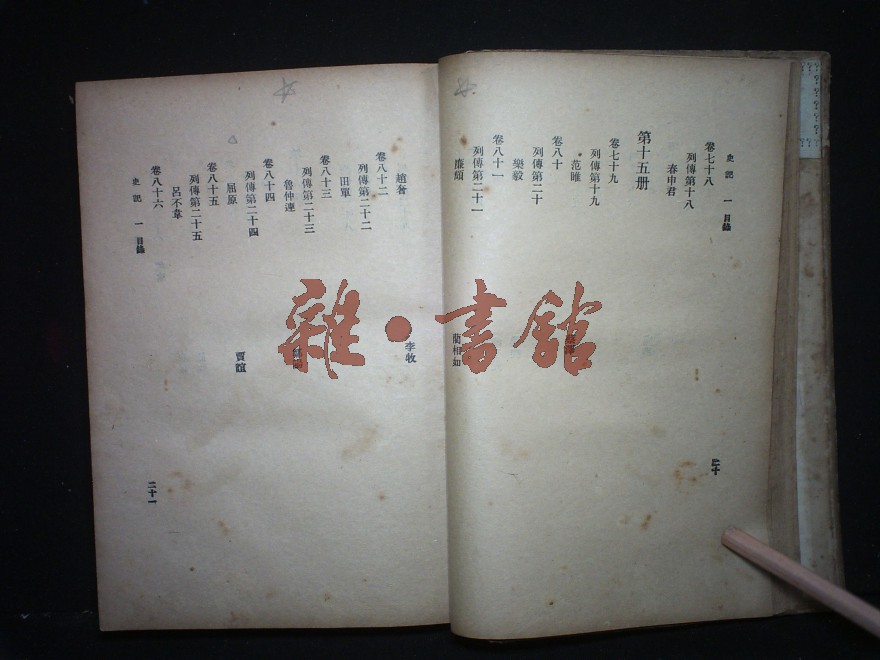 史記 一 目錄
卷七十八
列傳第十八
春申君
第十五册
卷七十九
列傳第十九
范睢
卷八十
列傳第二十
樂毅
卷八十一
列傳第二十一
廉頗 藺相如
二十
趙奢 李牧
卷八十二
列傳第二十二
田單
卷八十三
列傳第二十三
魯仲連
卷八十四
列傳第二十四
屈原 賈誼
卷八十五
列傳第二十五
呂不韋
卷八十六
史記 一 目錄
二十一
雜·書館